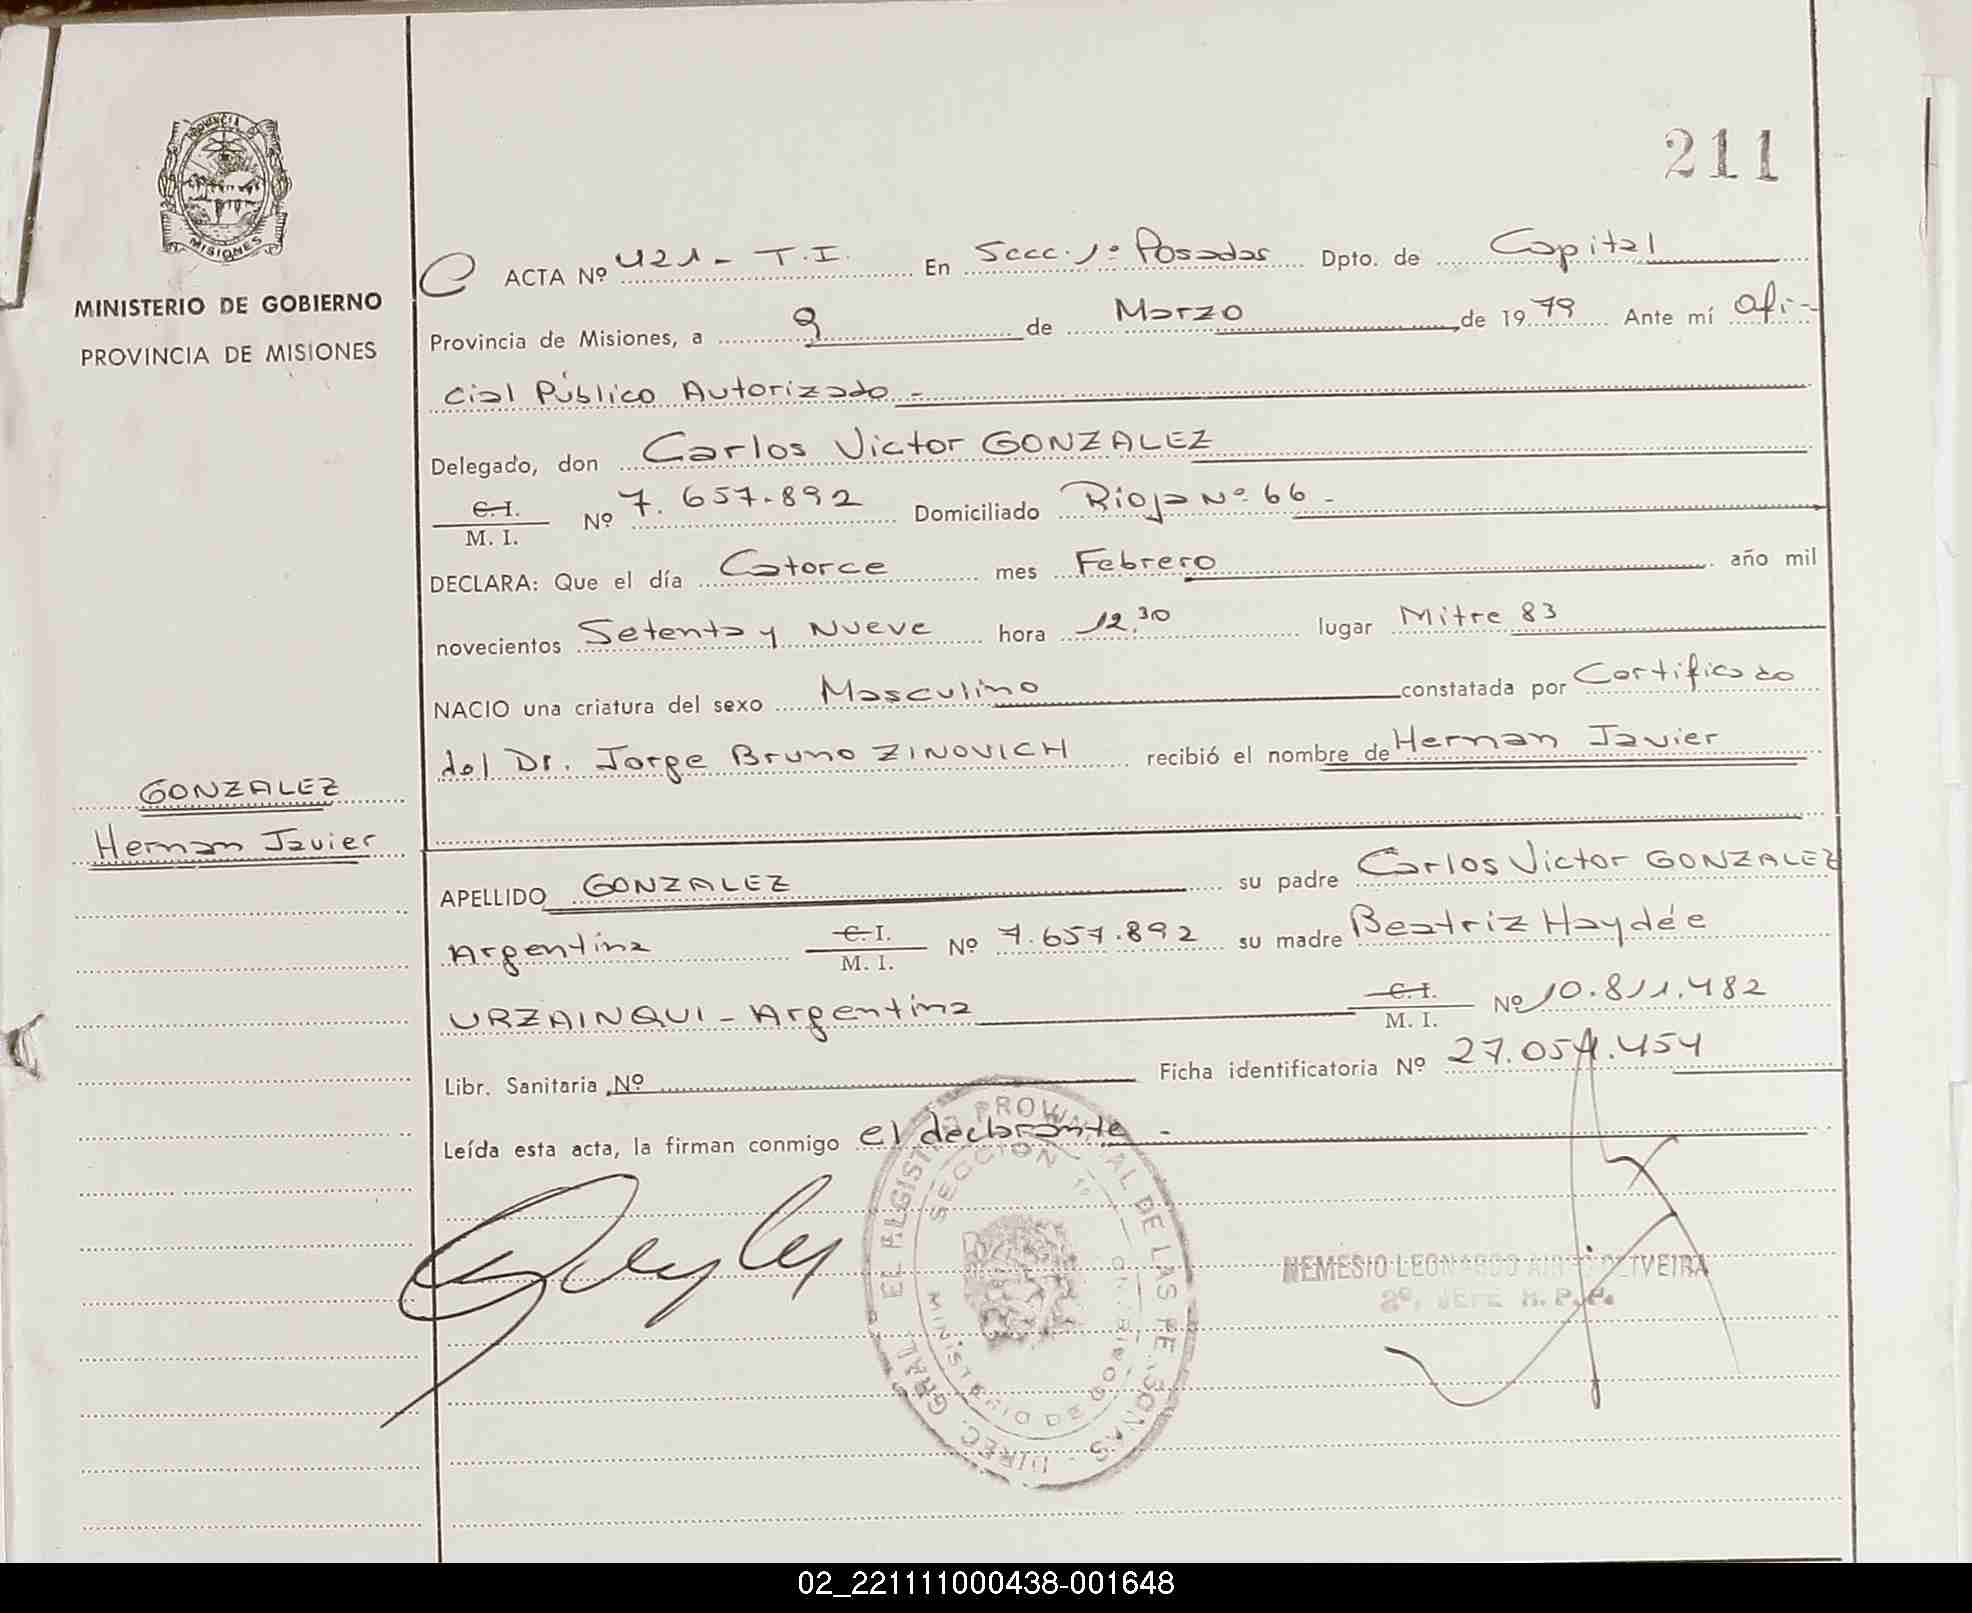 PROVINCIA DE
MISIONES
MINISTERIO DE GOBIERNO
PROVINCIA DE MISIONES
211
ACTA Nº 421 - T.I. En Secc. 1º Posadas Dpto. de Capital
Provincia de Misiones, a 9 de Marzo de 1979 Ante mí Ofi-
cial Público Autorizado -
Delegado, don Carlos Victor GONZALEZ
C.I.
M. I. Nº 7.657.892 Domiciliado Rioja Nº 66 -
DECLARA: Que el día Catorce mes Febrero año mil
novecientos Setenta y Nueve hora 12.30 lugar Mitre 83
NACIO una criatura del sexo Masculino constatada por Certificado
del Dr. Jorge Bruno ZINOVICH recibió el nombre de Hernan Javier
GONZALEZ
Hernan Javier
APELLIDO GONZALEZ su padre Carlos Victor GONZALEZ
Argentina C.I.
M. I. Nº 7.657.892 su madre Beatriz Haydée
URZAINQUI - Argentina C.I.
M. I. Nº 10.811.482
Libr. Sanitaria Nº Ficha identificatoria Nº 27.054.454
Leída esta acta, la firman conmigo el declarante -
DIREC. GRAL. DE LAS PERSONAS
SECCION
MINISTERIO DE GOBIERNO
NEMESIO LEONARDO OLIVEIRA
2º. JEFE R. P. P.
02_221111000438-001648